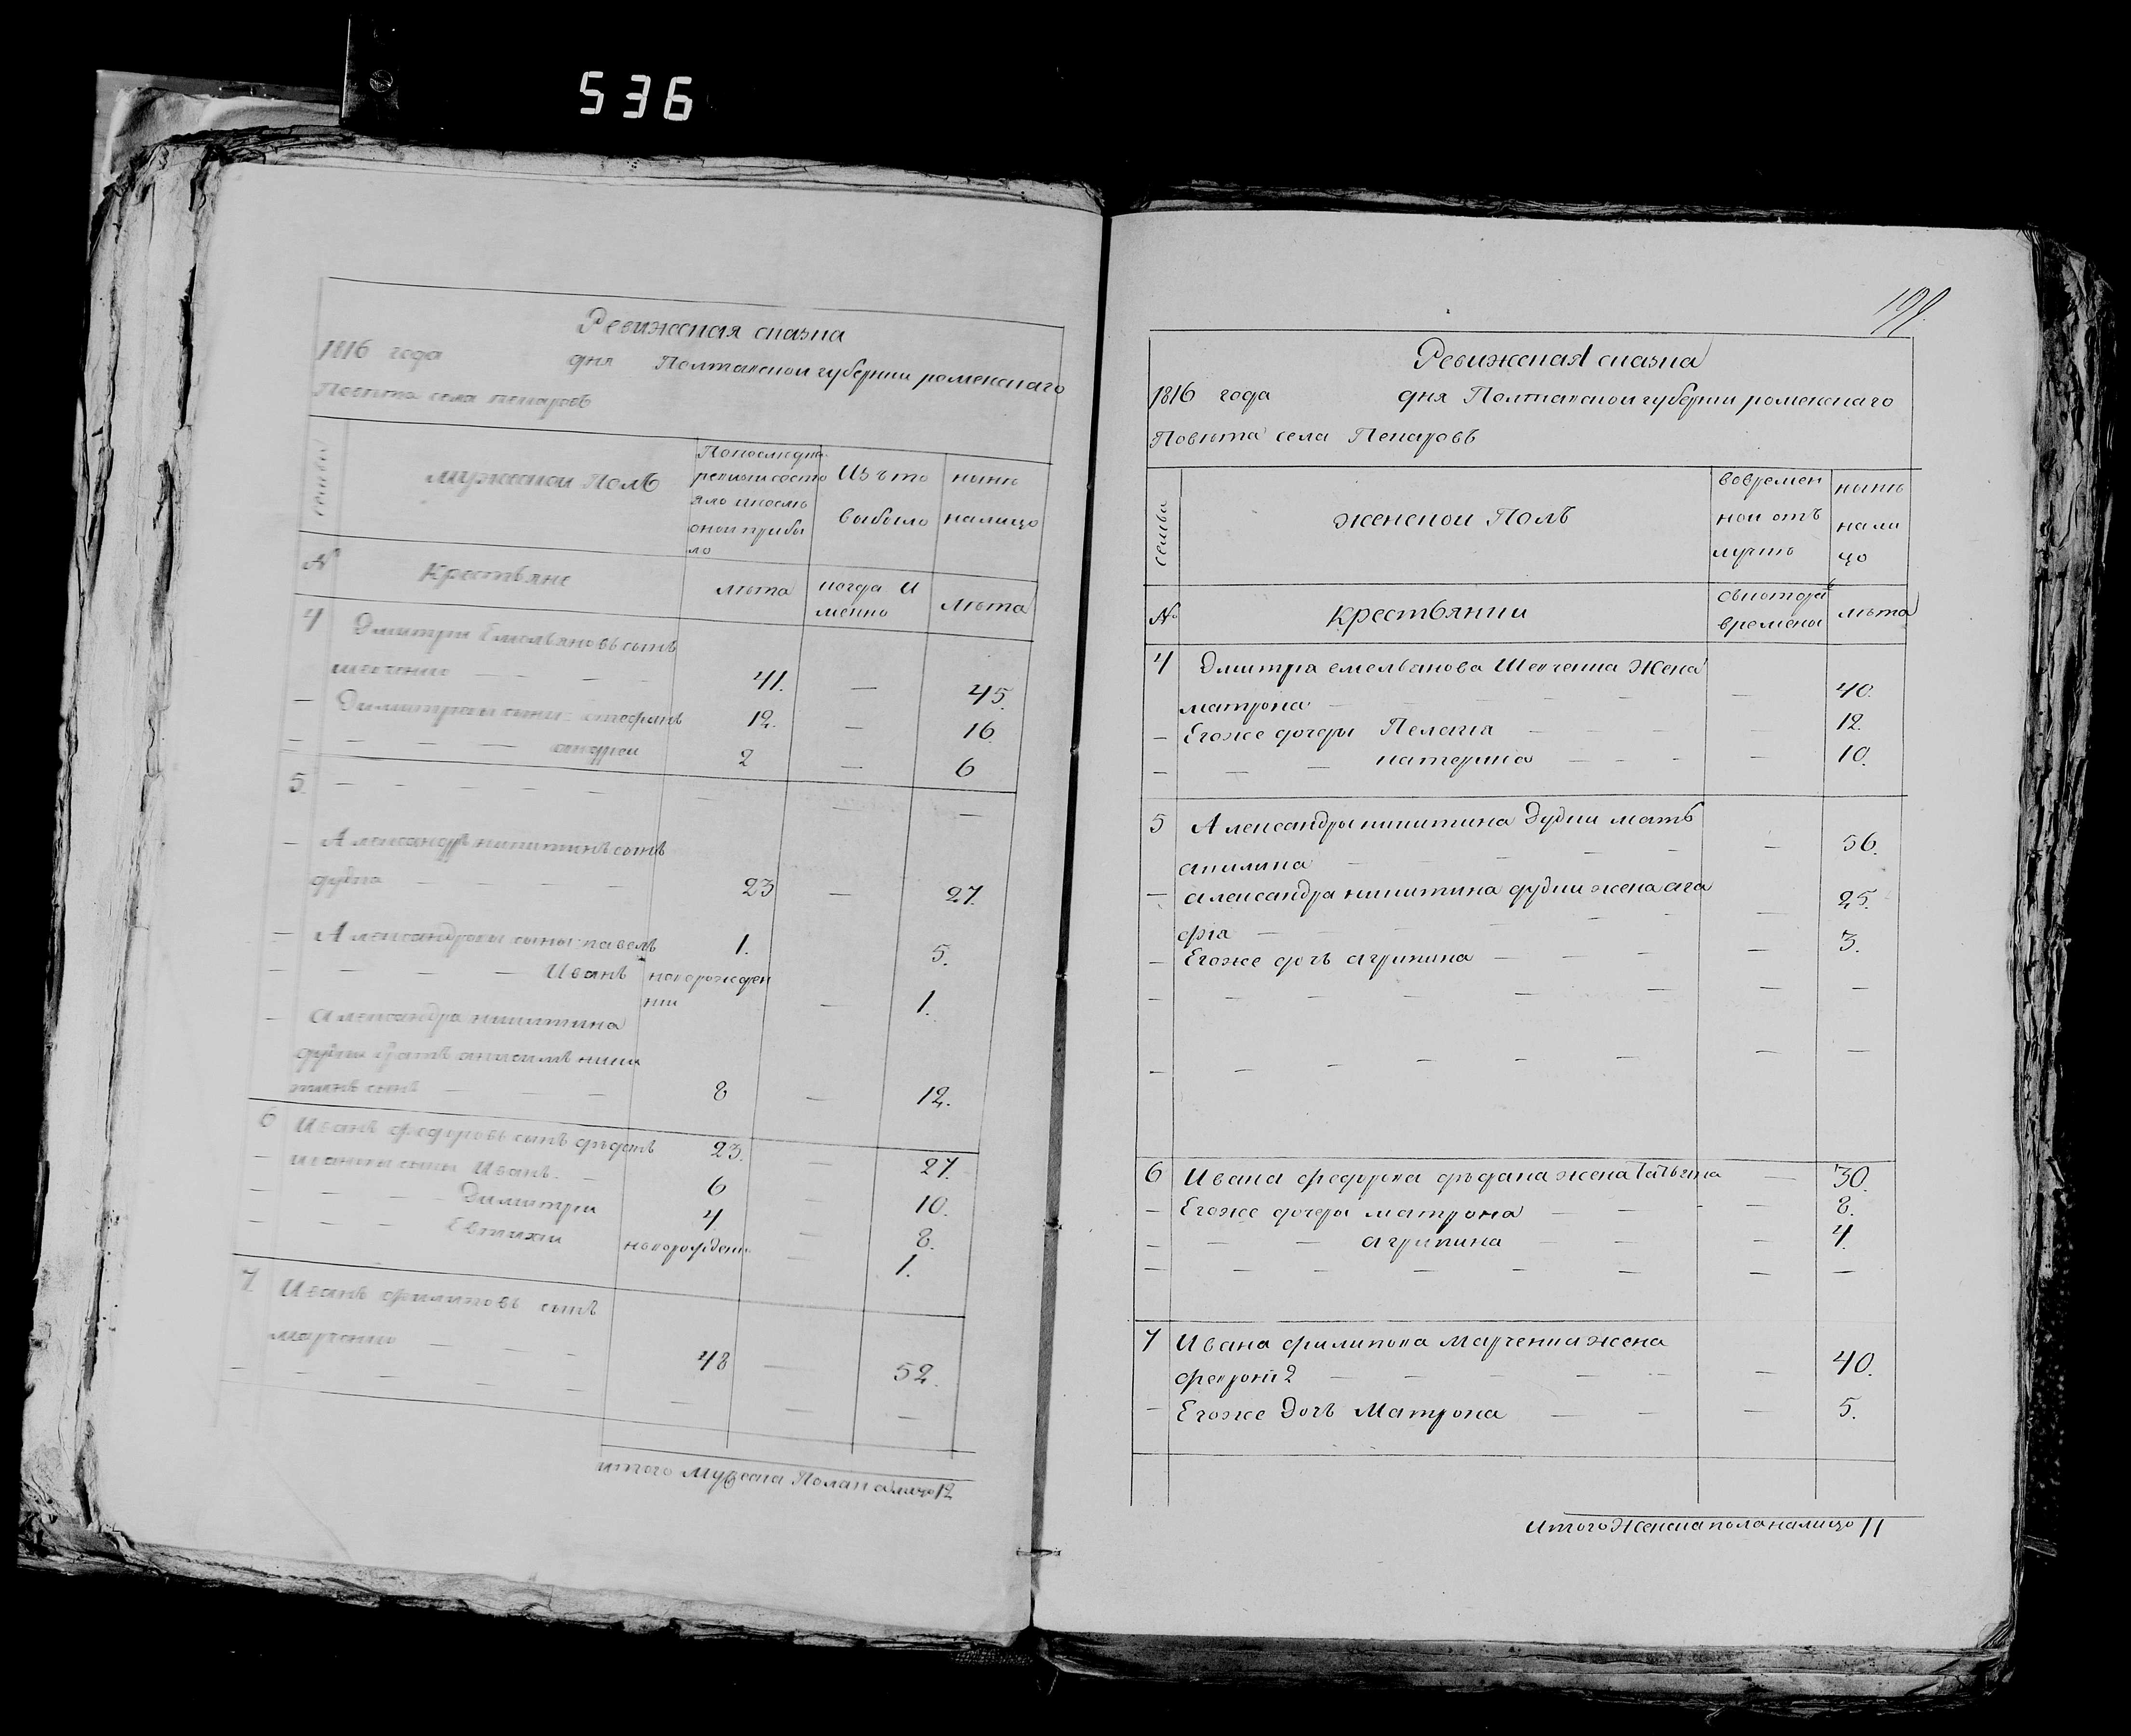 536
Ревижская сказка
1816 года дня Полтавской губернии роменскаго
Повѣта села пекаровъ
семьи
мужескои Полъ
Попоследнѣ
ревизии состо
яло ипослѣ
онои прибы
ло
Изъ то
выбыло
нынѣ
налицо
№
Крестьяне
лѣта
когда И
менно
лѣта
4 Дмитри Емельяновъ сынъ
шевченко — — — 41. — 45.
— Димитревы сыни: стефанъ 12. — 16
— — — — андреи 2 — 6
5. — — — — — — — —
— Александръ никитинъ сынъ
дудка — — — — 23 — 27.
— Александровы сыны: павелъ 1. 5.
— — — — Иванъ новорожден
нии — 1.
— Александра никитина
дудки братъ анисимъ ники
тинъ сынъ — — — 8 — 12.
6 Иванъ федоровъ сынъ 23. — 27.
— ивановы сыны Иванъ — 6 — 10.
— — — — Димитри 4 — 8.
— — — — Евтихии новорожденъ — 1.
7 Иванъ филиповъ сынъ
марченко — — — 48 — 52.
— — — — — — —
итого Мужеска Пола налицо 12
Ревижская сказка
1816 года дня Полтавскои губернии роменскаго
Повѣта села Пекаровъ
семьи
женскои Полъ
вовремен
нои отъ
лучкѣ
нынѣ
нали
цо
№
крестьянки
скотораг
времены
лѣта
4 Дмитра емельянова Шевченка Жена
матрона — — — — — 40.
— Егоже дочеры Пелагія — — — — — 12.
— — — катерина — — — — 10.
5 Александры никитина Дудки мать
акилина — — — — — 56.
— александра никитина дудки жена ага
фія — — — — — 25.
— Егоже дочъ агрипина — — — — 3.
— — — — — — — —
— — — — — — — —
6 Ивана федорова жена Татьяна — 30.
— Егоже дочеры матрона — — — — 8.
— — — агрипина — — — — 4.
— — — — — — — —
7 Ивана филипова Марченка жена
— — — — — 40.
— Егоже Дочъ Матрона — — — 5.
итого Женска пола налицо 11